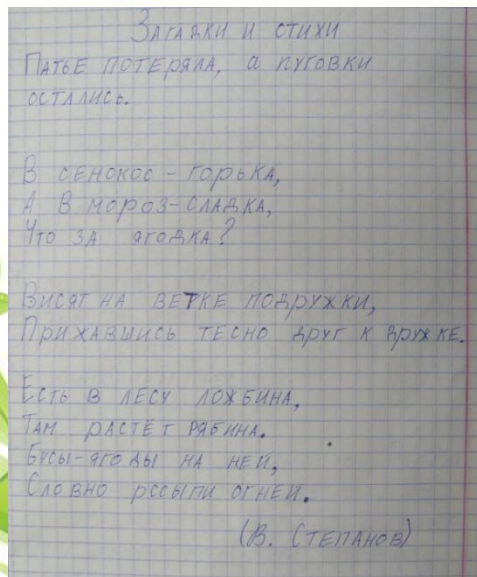 Загадки и стихи
Патье потеряла, а пуговки
остались.
В сенокос - горька,
А в мороз - сладка,
Что за ягодка?
Висят на ветке подружки,
Прижавшись тесно друг к дружке.
Есть в лесу ложбина,
Там растёт рябина.
Бусы-ягоды на ней,
Словно рссыпи огней.
(В. Степанов)